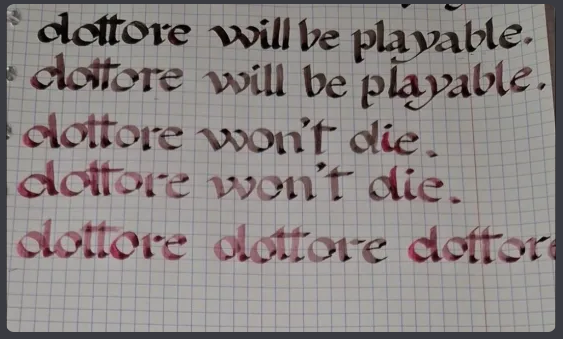 dottore will be playable.
dottore will be playable.
dottore won't die.
dottore won't die.
dottore dottore dottore